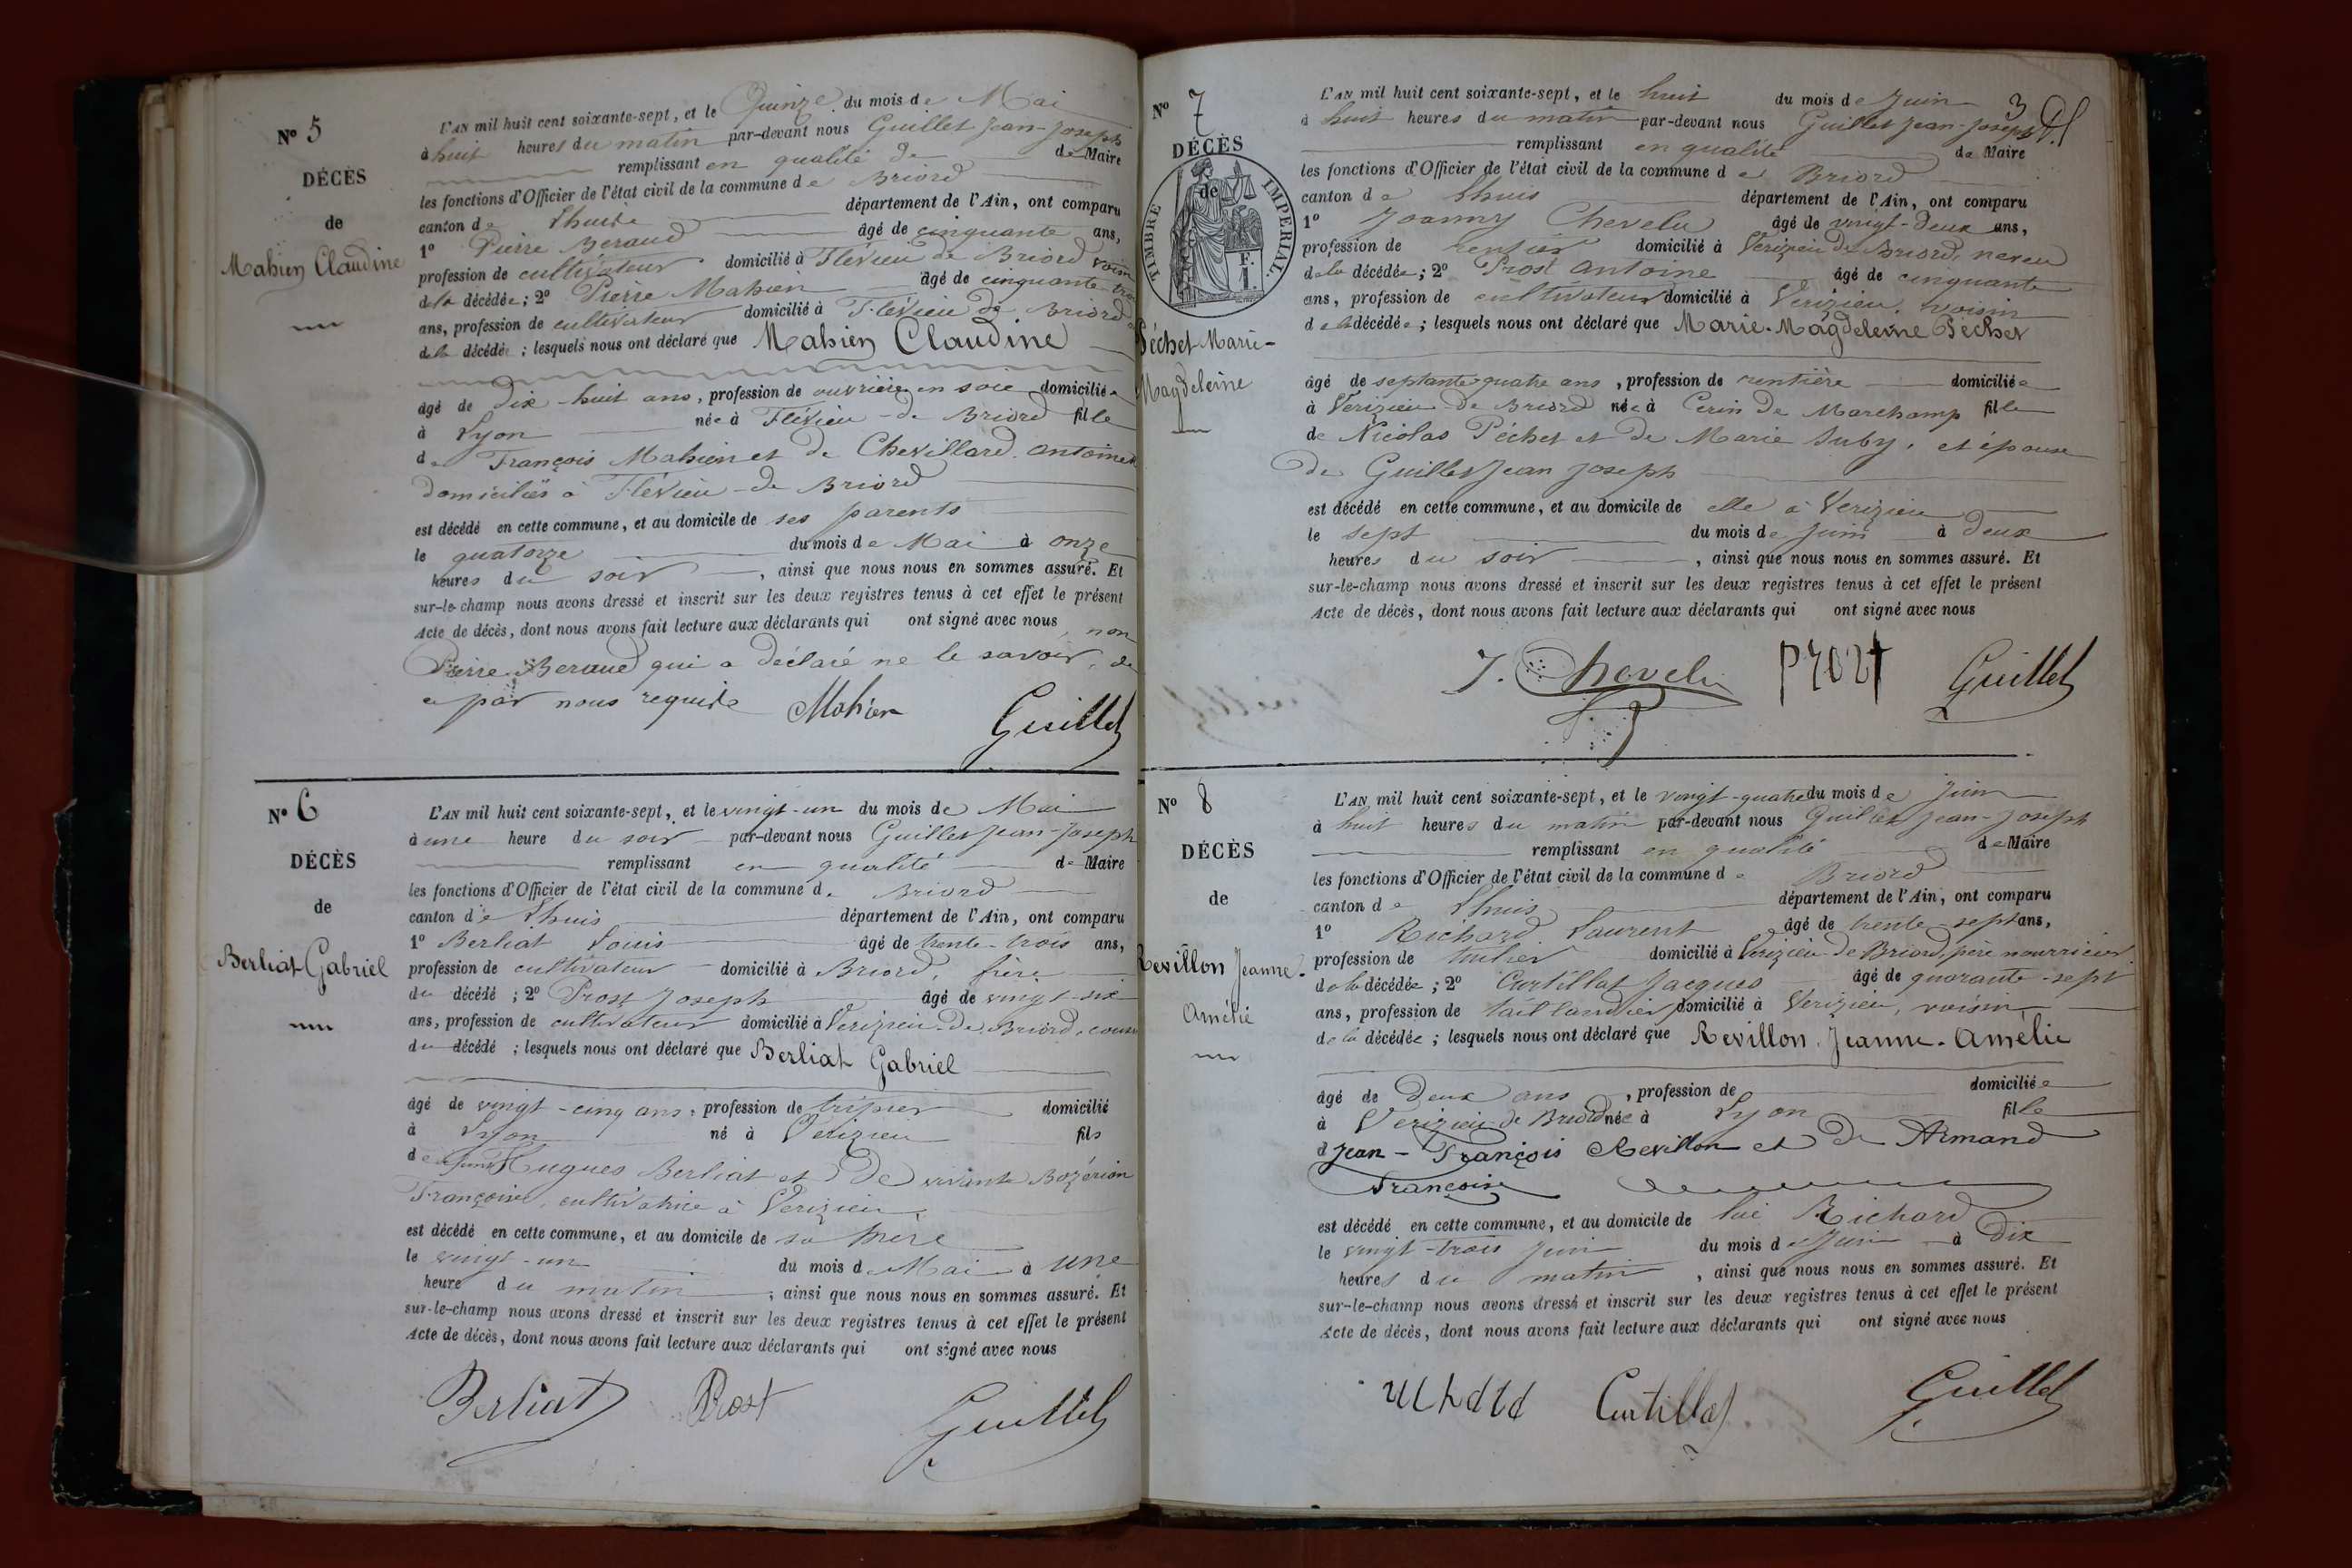 N° 5
DÉCÈS
de
Mahien Claudine
L'AN mil huit cent soixante-sept, et le Quinze du mois de Mai
à huit heures du matin par-devant nous Guillet Jean-Joseph
remplissant en qualité de de Maire
les fonctions d'Officier de l'état civil de la commune de Briord
canton de Lhuis département de l'Ain, ont comparu
1° Pierre Beraud âgé de cinquante ans,
profession de cultivateur domicilié à Flévieu de Briord voisin
de la décédée; 2° Pierre Mahien âgé de cinquante-trois
ans, profession de cultivateur domicilié à Flévieu de Briord
de la décédée; lesquels nous ont déclaré que Mahien Claudine
âgé de dix-huit ans, profession de ouvrière en soie domiciliée
à Lyon née à Flévieu-de Briord fille
de François Mahien et de Chevillard Antoinette
domiciliés à Flévieu-de Briord
est décédé en cette commune, et au domicile de ses parents
le quatorze du mois de Mai à onze
heures du soir, ainsi que nous nous en sommes assuré. Et
sur-le-champ nous avons dressé et inscrit sur les deux registres tenus à cet effet le présent
Acte de décès, dont nous avons fait lecture aux déclarants qui ont signé avec nous, non
Pierre Beraud qui a déclaré ne le savoir, de
ce par nous requis
Mahien Guillet
N° 6
DÉCÈS
de
Berliat Gabriel
L'AN mil huit cent soixante-sept, et le vingt-un du mois de Mai
à une heure du soir par-devant nous Guillet Jean-Joseph
remplissant en qualité de Maire
les fonctions d'Officier de l'état civil de la commune de Briord
canton de Lhuis département de l'Ain, ont comparu
1° Berliat Louis âgé de trente-trois ans,
profession de cultivateur domicilié à Briord, frère
du décédé; 2° Prost Joseph âgé de vingt-six
ans, profession de cultivateur domicilié à Verizieu de Briord, cousin
du décédé; lesquels nous ont déclaré que Berliat Gabriel
âgé de vingt-cinq ans, profession de tripier domicilié
à Lyon né à Verizieu fils
de Hugues Berliat et De vivante Bozérian
Françoise, cultivatrice à Verizieu,
est décédé en cette commune, et au domicile de sa mère
le vingt-un du mois de Mai à une
heure du matin; ainsi que nous nous en sommes assuré. Et
sur-le-champ nous avons dressé et inscrit sur les deux registres tenus à cet effet le présent
Acte de décès, dont nous avons fait lecture aux déclarants qui ont signé avec nous
Berliat Prost Guillet
3
N° 7
DÉCÈS
de
TIMBRE IMPERIAL.
F.
1.
Péchet Marie-
Magdeleine
L'AN mil huit cent soixante-sept, et le huit du mois de Juin
à huit heures du matin par-devant nous Guillet Jean-Joseph
remplissant en qualité de Maire
les fonctions d'Officier de l'état civil de la commune de Briord
canton de Lhuis département de l'Ain, ont comparu
1° Joanny Chevelu âgé de vingt-deux ans,
profession de rentier domicilié à Verizieu de Briord, neveu
de la décédée; 2° Prost Antoine âgé de cinquante
ans, profession de cultivateur domicilié à Verizieu, voisin
de la décédée; lesquels nous ont déclaré que Marie-Magdeleine Péchet
âgé de septante quatre ans, profession de rentière domiciliée
à Verizieu-de Briord née à Cerin De Marchamp fille
de Nicolas Péchet et de Marie Suby, et épouse
de Guillet Jean Joseph
est décédé en cette commune, et au domicile de elle à Verizieu
le sept du mois de Juin à deux
heures du soir, ainsi que nous nous en sommes assuré. Et
sur-le-champ nous avons dressé et inscrit sur les deux registres tenus à cet effet le présent
Acte de décès, dont nous avons fait lecture aux déclarants qui ont signé avec nous
J. Chevelu prost Guillet
N° 8
DÉCÈS
de
Revillon Jeanne-
Amélie
L'AN mil huit cent soixante-sept, et le vingt-quatre du mois de Juin
à huit heures du matin par-devant nous Guillet Jean-Joseph
remplissant en qualité de Maire
les fonctions d'Officier de l'état civil de la commune de Briord
canton de Lhuis département de l'Ain, ont comparu
1° Richard Laurent âgé de trente sept ans,
profession de tuilier domicilié à Verizieu de Briord, père nourricier
de la décédée; 2° Curtillat Jacques âgé de quarante-sept
ans, profession de taillandier domicilié à Verizieu, voisin
de la décédée; lesquels nous ont déclaré que Revillon Jeanne-Amélie
âgé de Deux ans, profession de domiciliée
à Verizieu de Briord née à Lyon fille
d Jean-François Revillon et De Armand
Françoise
est décédé en cette commune, et au domicile de lui Richard
le vingt-trois Juin du mois de Juin à Dix
heures du matin, ainsi que nous nous en sommes assuré. Et
sur-le-champ nous avons dressé et inscrit sur les deux registres tenus à cet effet le présent
Acte de décès, dont nous avons fait lecture aux déclarants qui ont signé avec nous
Curtillat Guillet